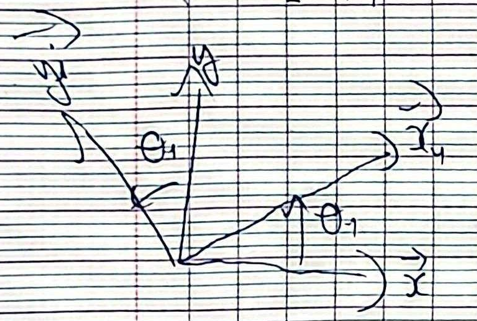 y⃗i
y
θ1
x⃗4
θ1
x⃗